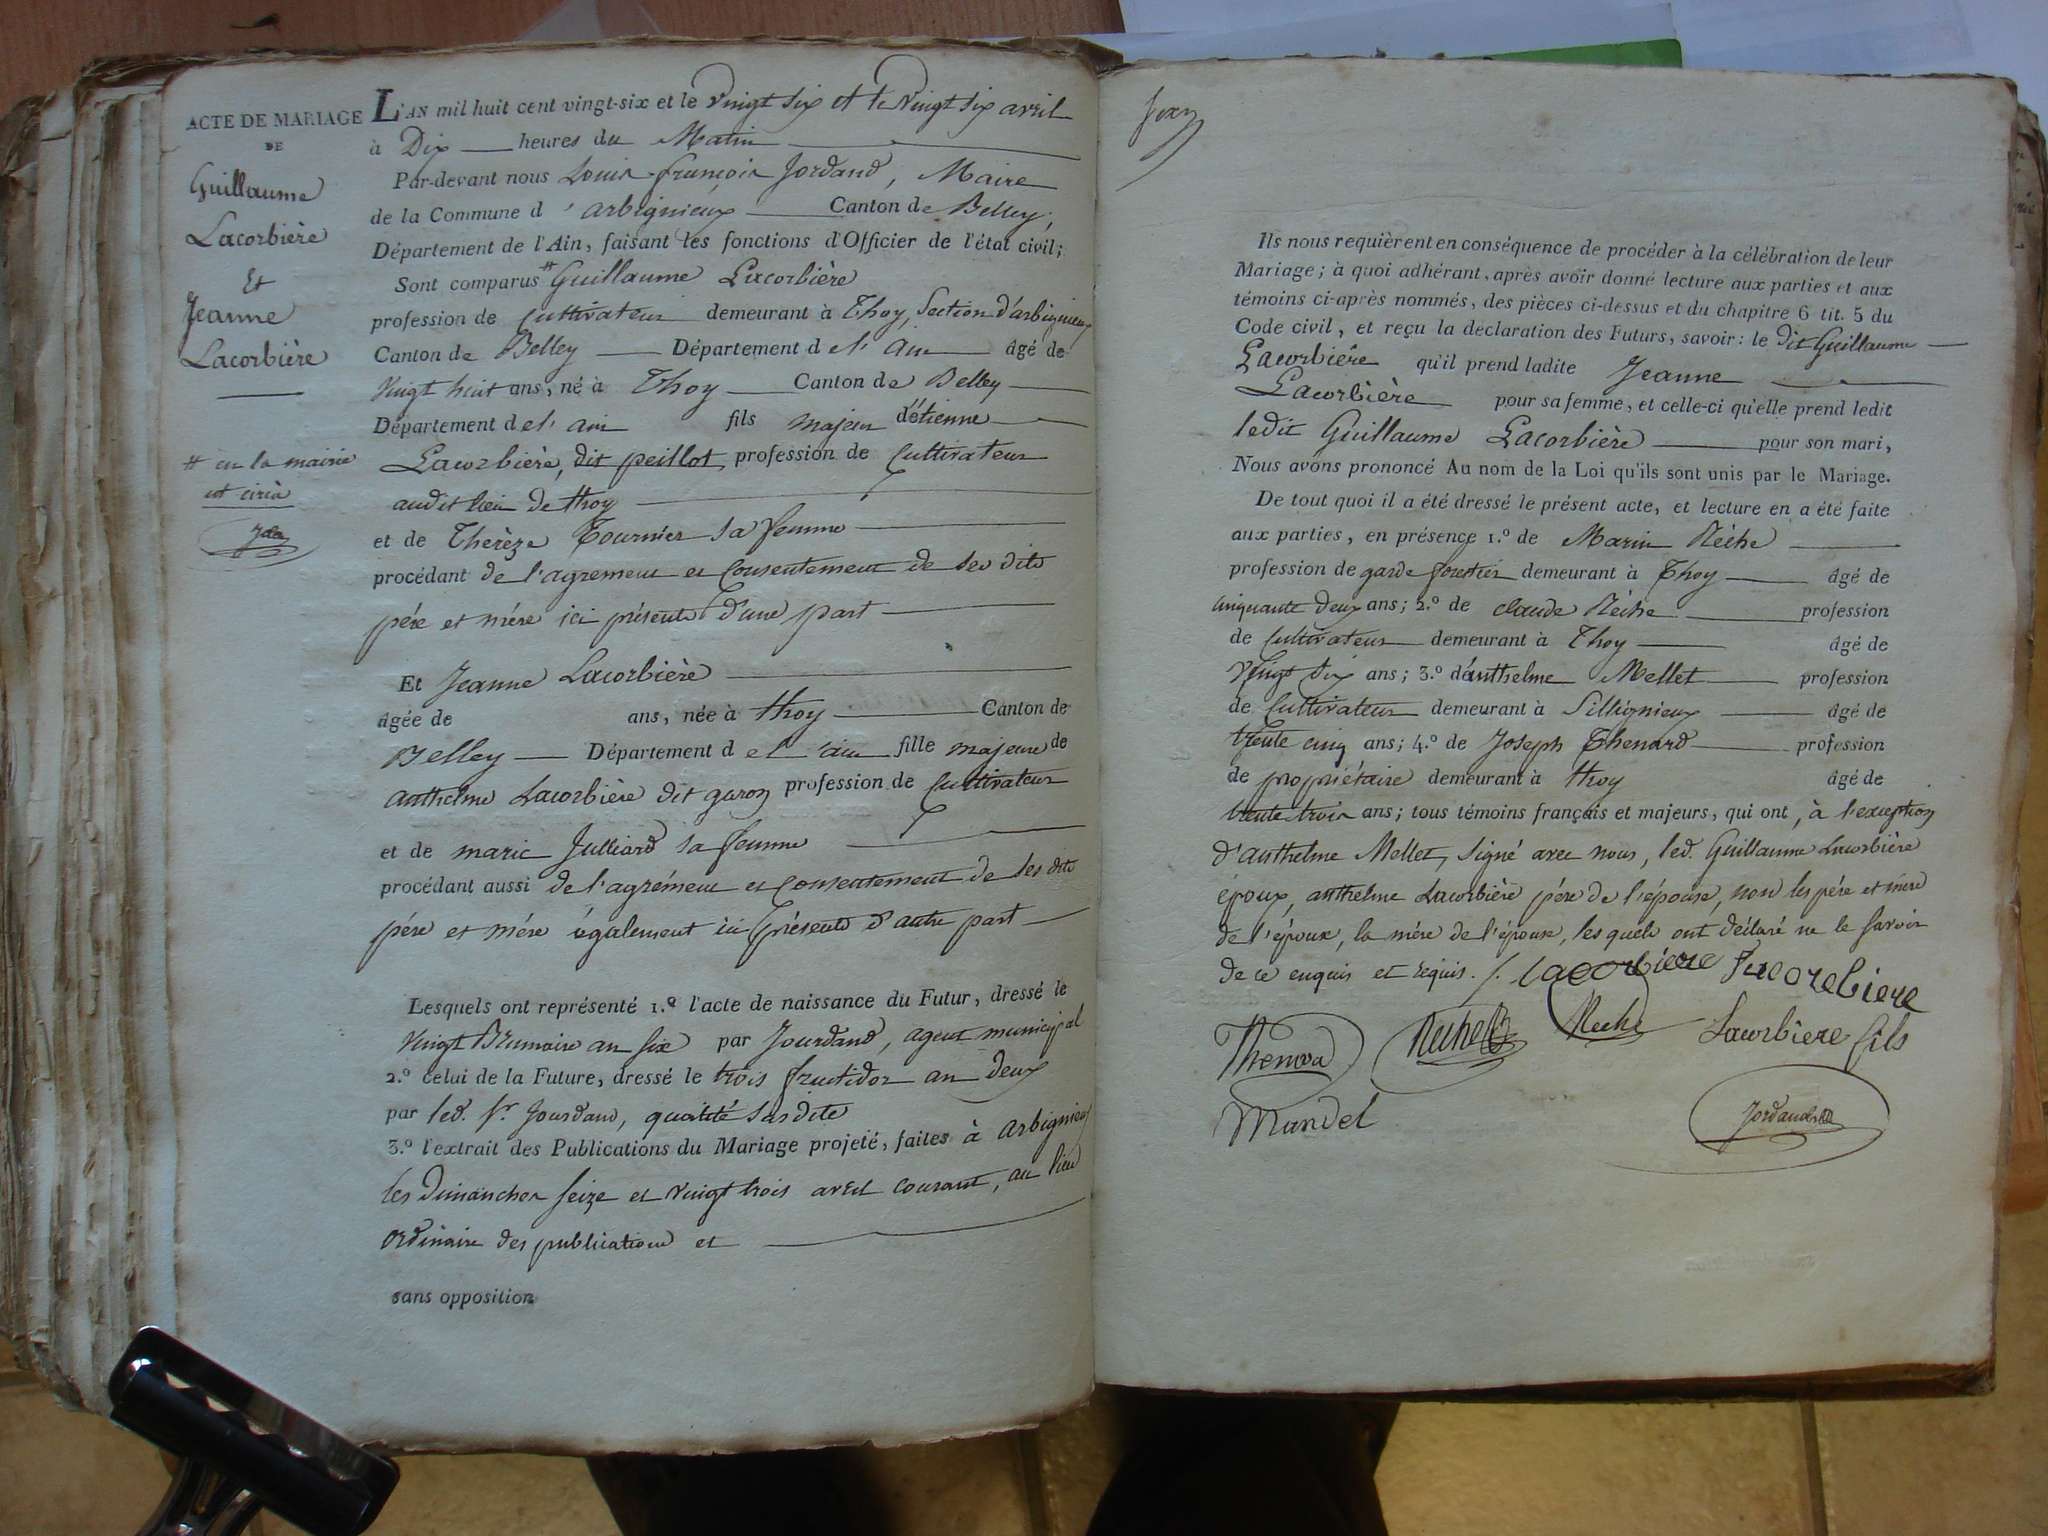 ACTE DE MARIAGE
DE
Guillaume
Lacorbière
Et
Jeanne
Lacorbière
# en la mairie
L'AN mil huit cent vingt-six et le vingt six et le vingt six avril
à Dix heures du Matin
Par-devant nous Louis françois Jordand, Maire
de la Commune d'arbignieux Canton de Belley,
Département de l'Ain, faisant les fonctions d'Officier de l'état civil;
Sont comparus # Guillaume Lacorbière
profession de Cultivateur demeurant à Thoy, Section d'arbignieux
Canton de Belley Département de l'ain âgé de
vingt huit ans, né à Thoy Canton de Belley
Département de l'ain fils majeur d'étienne
Lacorbière, dit peillot, profession de Cultivateur
audit lieu de thoy
et de Thérèze Tournier sa femme
procédant de l'agrement et Consentement de ses dits
pére et mére ici présents d'une part
Et Jeanne Lacorbière
âgée de ans, née à thoy Canton de
Belley Département de l'ain fille majeure de
anthelme Lacorbière dit garon profession de Cultivateur
et de marie Julliard sa femme
procédant aussi de l'agrément et Consentement de ses dits
pére et mére également ici présents d'autre part
Lesquels ont représenté 1.º l'acte de naissance du Futur, dressé le
vingt Brumaire an six par Jourdand, agent municipal
2.º celui de la Future, dressé le trois fructidor an deux
par led. Sr. Jourdand, qualité susdite
3.º l'extrait des Publications du Mariage projeté, faites à arbignieux
les dimanches seize et vingt trois avril courant, au lieu
ordinaire des publications et
sans opposition
Ils nous requièrent en conséquence de procéder à la célébration de leur
Mariage; à quoi adhérant, après avoir donné lecture aux parties et aux
témoins ci-après nommés, des pièces ci-dessus et du chapitre 6 tit. 5 du
Code civil, et reçu la déclaration des Futurs, savoir: le dit Guillaume
Lacorbière qu'il prend ladite Jeanne
Lacorbière pour sa femme, et celle-ci qu'elle prend ledit
ledit Guillaume Lacorbière pour son mari,
Nous avons prononcé Au nom de la Loi qu'ils sont unis par le Mariage.
De tout quoi il a été dressé le présent acte, et lecture en a été faite
aux parties, en présence 1.º de Marin Réche
profession de garde forestier demeurant à Thoy âgé de
cinquante deux ans; 2.º de claude Réche profession
de Cultivateur demeurant à Thoy âgé de
vingt six ans; 3.º d'anthelme Mellet profession
de Cultivateur demeurant à Sillignieux âgé de
trente cinq ans; 4.º de Joseph Thenard profession
de propriétaire demeurant à thoy âgé de
trente trois ans; tous témoins français et majeurs, qui ont, à l'exception
d'anthelme Mellet, signé avec nous, led. Guillaume Lacorbière
époux, anthelme Lacorbière pére de l'épouse, non les pére et mére
de l'époux, la mére de l'épouse, lesquels ont déclaré ne le savoir
de ce enquis et requis. lacorbiere
Lacorbiere fils
Mandel